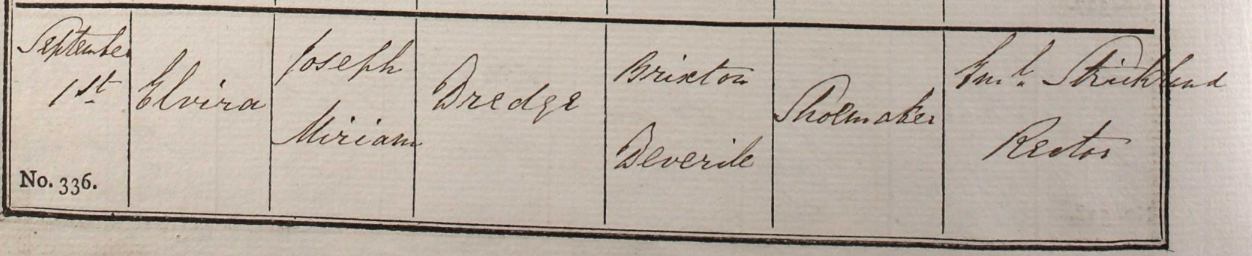 September
1st
No. 336.
Elvira
Joseph
Miriam
Dredge
Brixton
Deverile
Shoemaker
Strickland
Rector